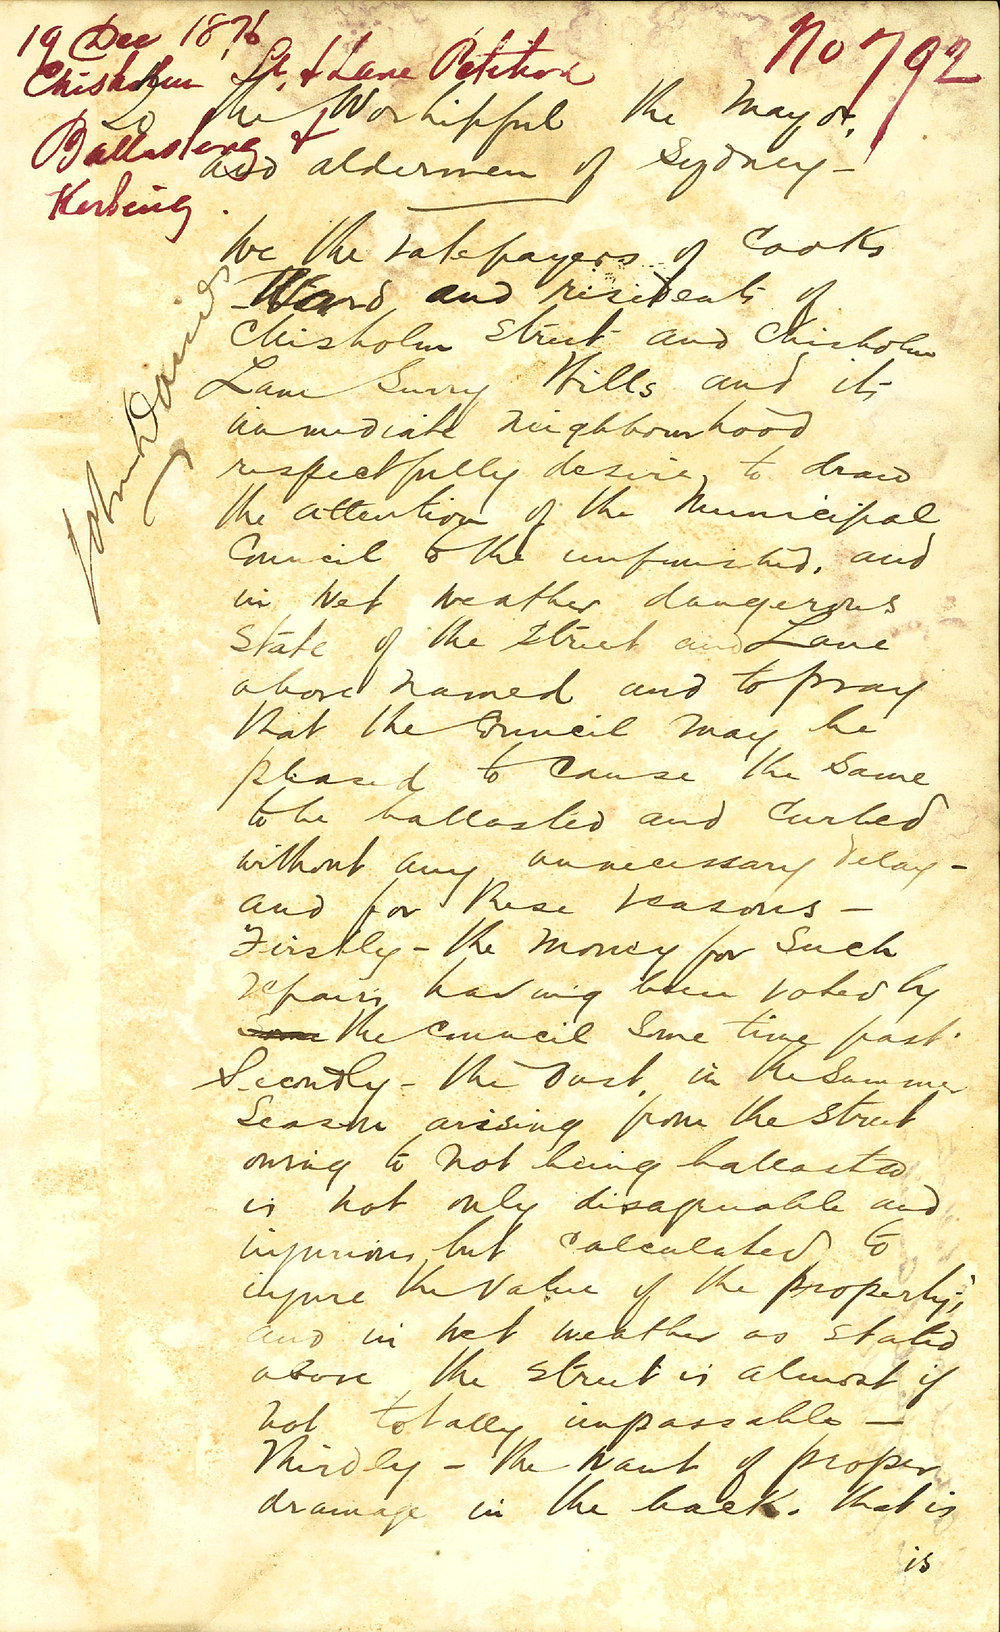 19 Dec 1876
No 792
Chisholm St. & Lane Petition
Ballasting &
Kerbing
To the Worshipful the Mayor,
and aldermen of Sydney –
We the ratepayers of Cooks
Ward and residents of
Chisholm Street and Chisholm
Lane Surry Hills and its
immediate neighbourhood
respectfully desire to draw
the attention of the Municipal
Council to the unfinished, and
in wet weather dangerous
state of the Street and Lane
above named and to pray
that the Council may be
pleased to cause the same
to be ballasted and curbed
without any unnecessary delay –
and for these reasons –
Firstly – the money for such
repairs having been voted by
the Council some time past.
Secondly – the Dust, in the Summer
Season arising from the Street
owing to not being ballasted
is not only disagreeable and
injurious but calculated to
injure the value of the property;
and in wet weather as stated
above the street is almost if
not totally impassable –
Thirdly – the want of proper
drainage in the back. that is
is
John Davies